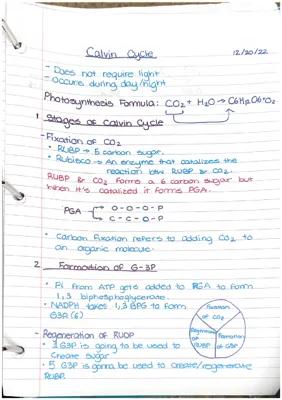 Calvin Cycle
12/20/22
- Does not require light
- Occurs during day/night
Photosynthesis Formula: CO2 + H2O → C6H12O6 + O2
1. Stages of Calvin Cycle
- Fixation of CO2
• RUBP → 5 carbon sugar.
• Rubisco → An enzyme that catalizes the
reaction btw RUBP & CO2.
RUBP & CO2 forms a 6 carbon sugar but
when it's catalized it forms PGA.
PGA
O-O-O-P
C-C-O-P
• Carbon fixation refers to adding CO2 to
an organic molecule.
2. Formation of G-3P
• Pi from ATP gets added to PGA to form
1,3 biphosphoglycerate.
• NADPH takes 1,3 BPG to form
G3P (6)
Fixation
of CO2
Regeneration
of RUBP
Formation
of G3P
- Regeneration of RUDP
• 1 G3P is going to be used to
create sugar
• 5 G3P is gonna be used to create/regenerate
RUBP.